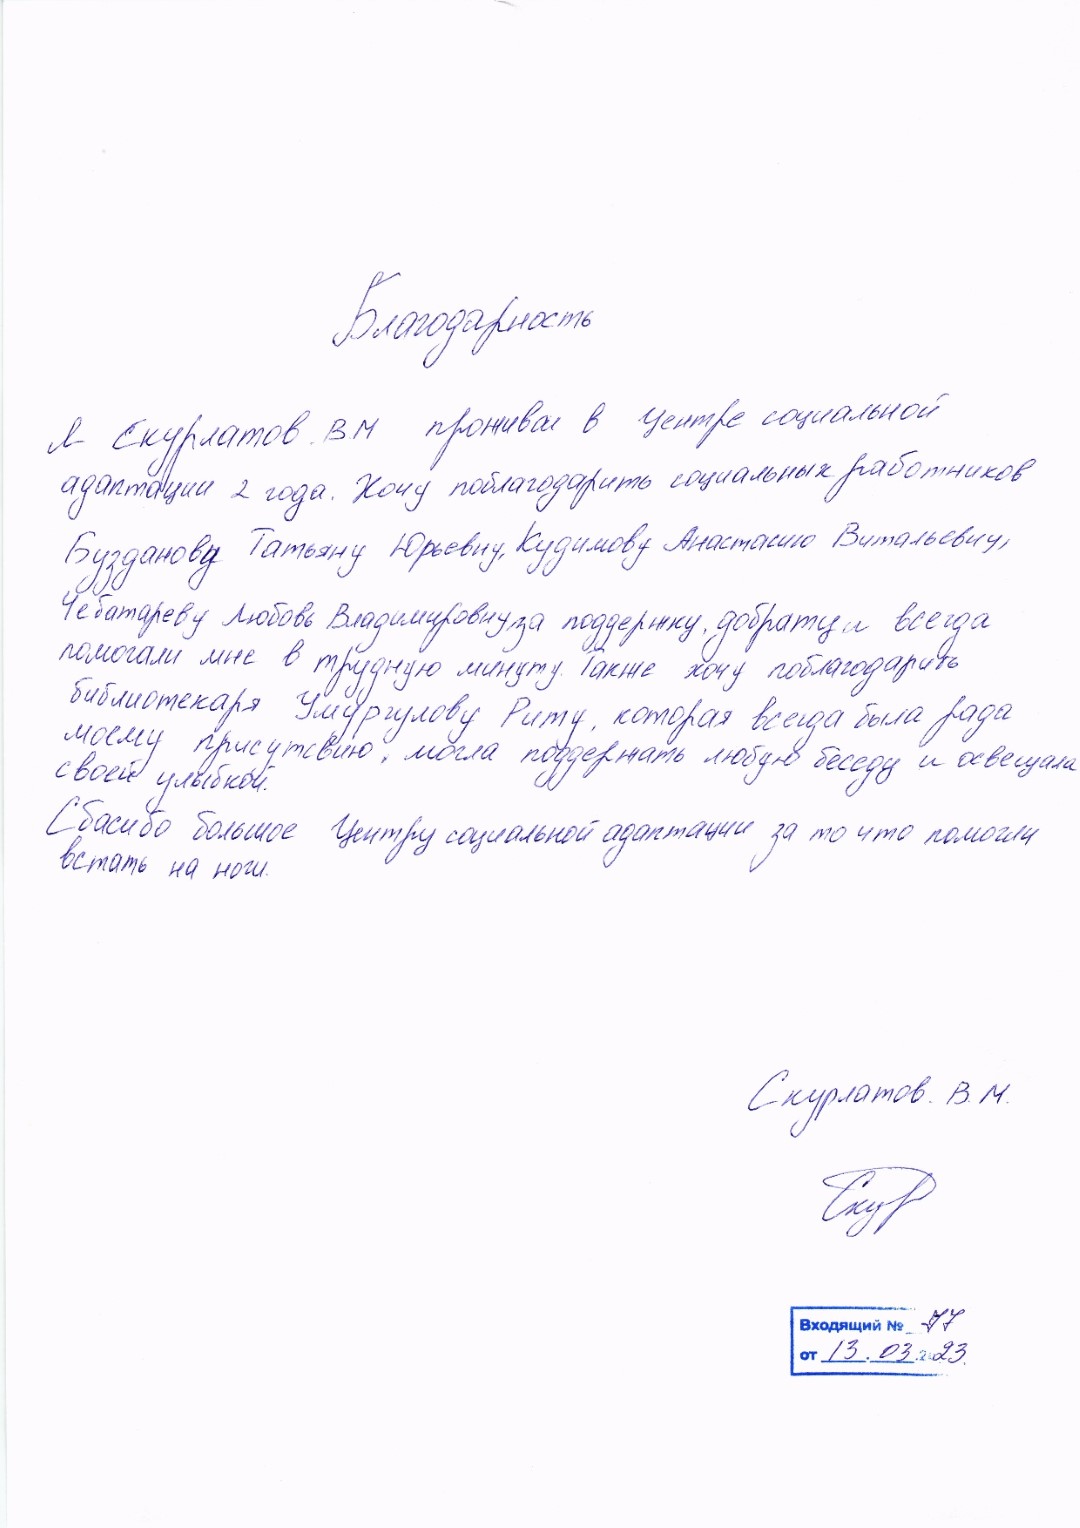 Благодарность
Я Скурлатов. В.М проживал в Центре социальной
адаптации 2 года. Хочу поблагодарить социальных работников
Бузданову Татьяну Юрьевну, Кудимову Анастасию Витальевну,
Чебатареву Любовь Владимировну за поддержку, добрату и всегда
помогали мне в трудную минуту. Также хочу поблагодарить
библиотекаря Умургулову Риту, которая всегда была рада
моему присутсвию, могла поддержать любую беседу и освещала
своей улыбкой.
Сбасибо большое Центру социальной адаптации за то что помогли
встать на ноги.
Скурлатов. В. М.
Скур
Входящий № 77
от 13.03.2023